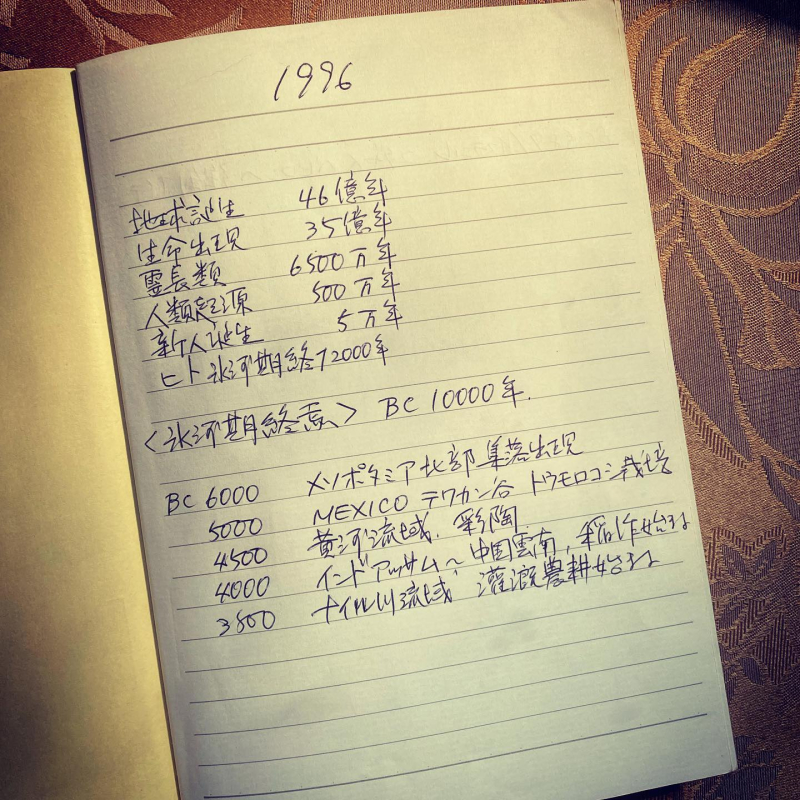 1996
地球誕生 46億年
生命出現 35億年
霊長類 6500万年
人類起源 500万年
新人誕生 5万年
ヒト氷河期終12000年
〈氷河期終焉〉 BC 10000年.
BC 6000 メソポタミア北部集落出現
5000 MEXICO テワカン谷 トウモロコシ栽培
4500 黄河流域、彩陶
4000 インドアッサム〜中国雲南,稲作始まる
3800 ナイル川流域 灌漑農耕始まる